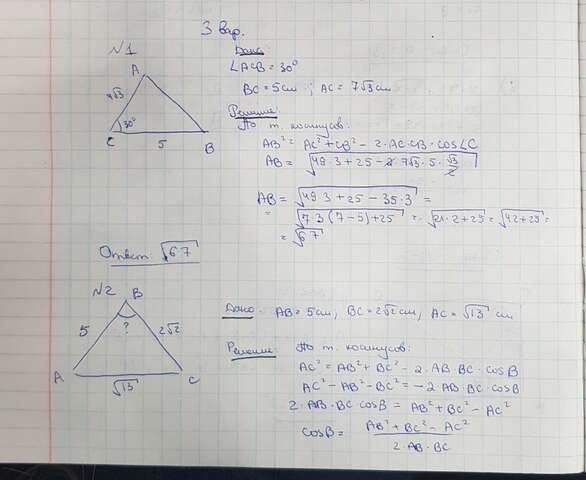 3 вар.
№1
Дано:
∠ACB = 30°
BC = 5 см ; AC = 7√3 см
A
7√3
30°
C
5
B
Решение:
По т. косинусов:
AB² = AC² + CB² - 2·AC·CB·cos∠C
AB = √(49·3 + 25 - 2·7√3·5·√3/2)
AB = √(49·3 + 25 - 35·3) =
= √(7·3(7-5)+25) = √(21·2+25) = √(42+25) =
= √67
Ответ: √67
№2
B
5
?
2√2
A
√13
C
Дано: AB = 5 см, BC = 2√2 см, AC = √13 см
Решение: По т. косинусов:
AC² = AB² + BC² - 2·AB·BC·cosB
AC² - AB² - BC² = -2·AB·BC·cosB
2·AB·BC·cosB = AB² + BC² - AC²
cosB = (AB² + BC² - AC²)/(2·AB·BC)